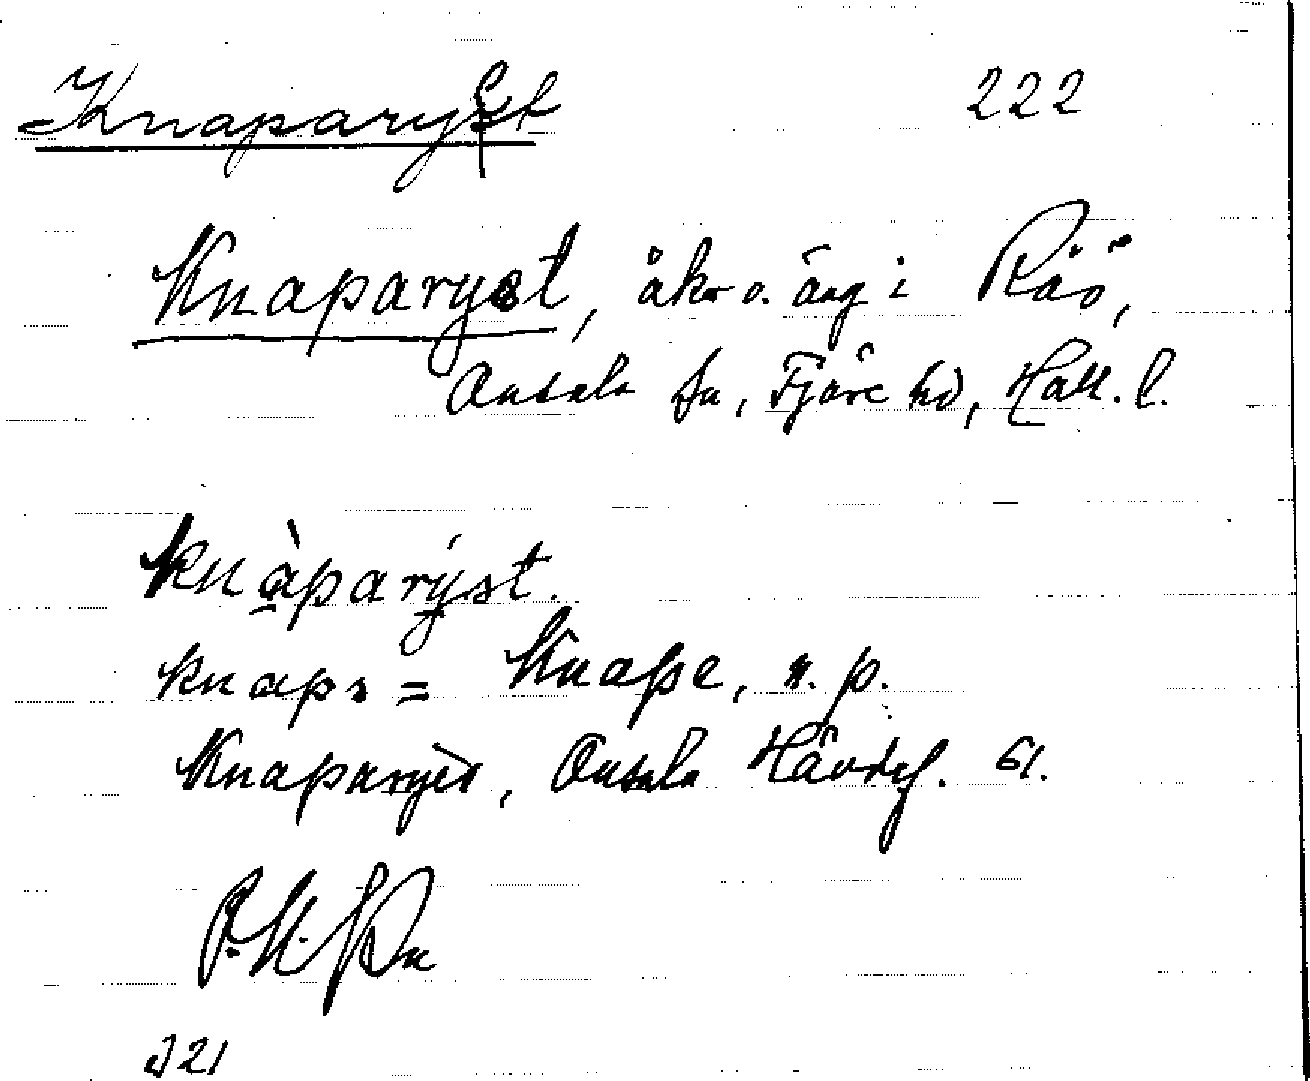 Knaparyst 222
Knaparyst, åkr o. äng i Råö,
Onsala sn, Fjäre hd, Hall. l.
knàparýst.
knapa = Knape, n. p.
Knaparyèt, Onsala Hävdef. 61.
J 21